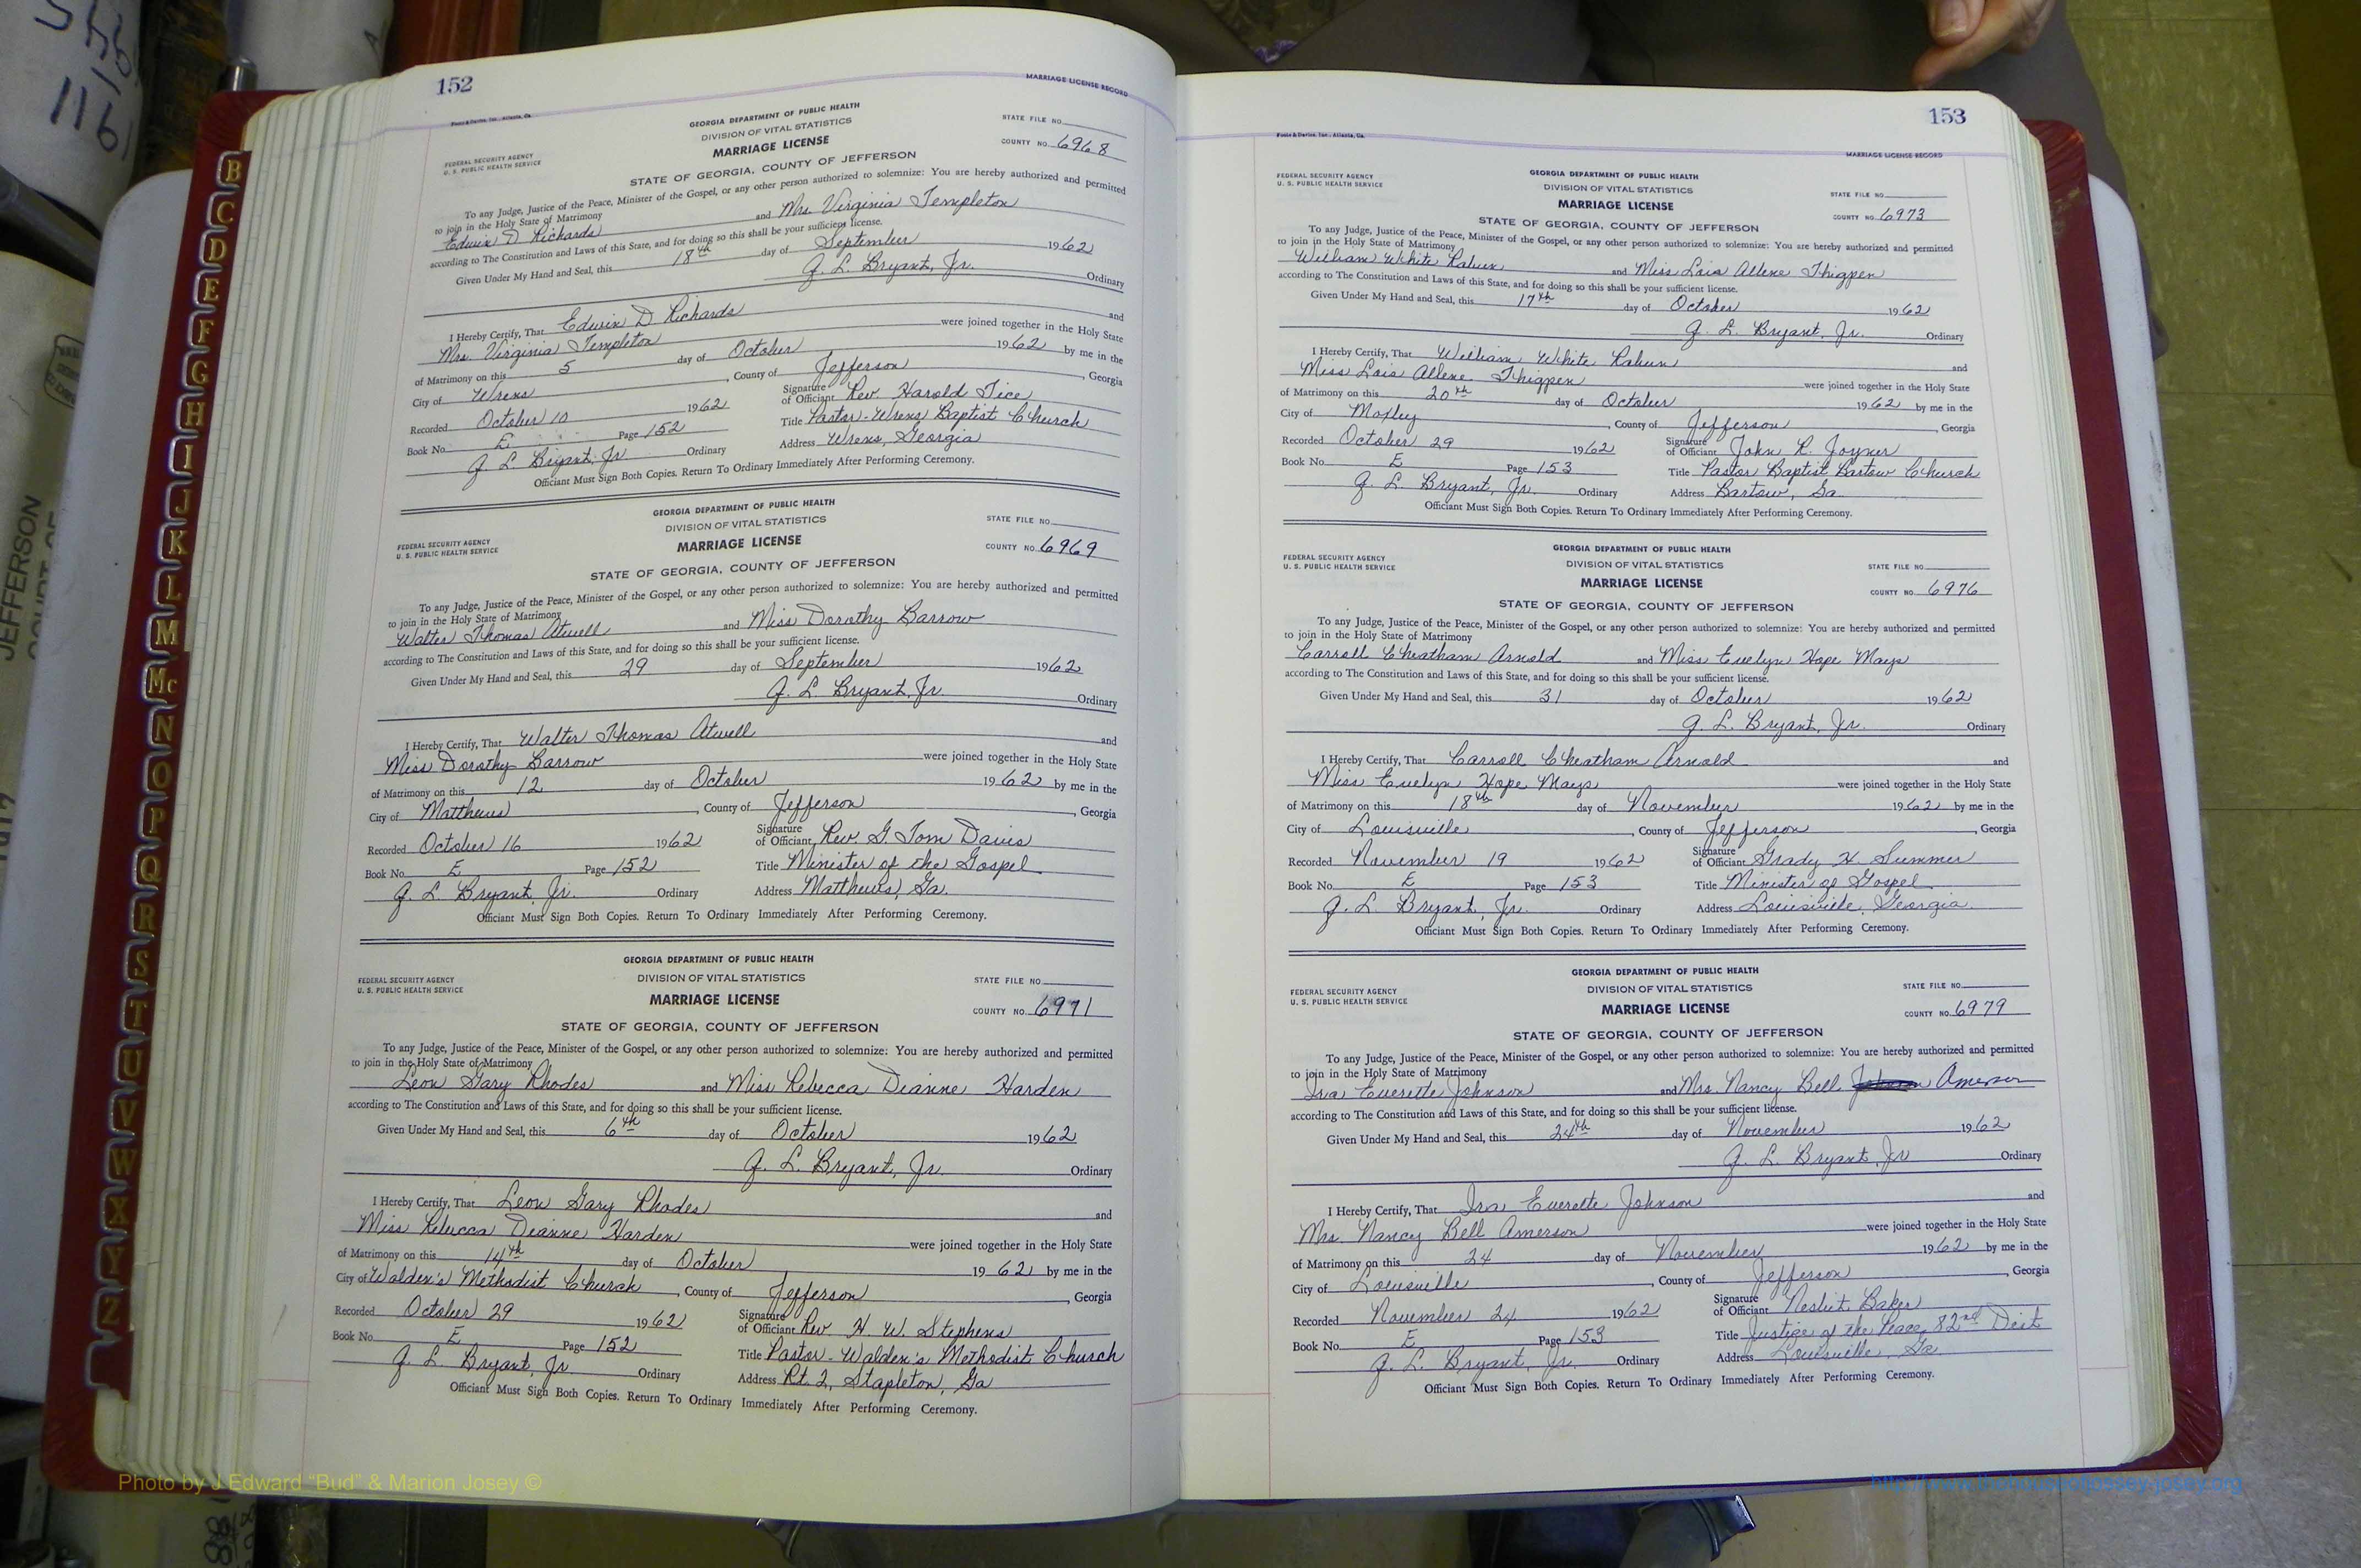 152
MARRIAGE LICENSE RECORD
Foote & Davies, Inc., Atlanta, Ga.
GEORGIA DEPARTMENT OF PUBLIC HEALTH
DIVISION OF VITAL STATISTICS
MARRIAGE LICENSE
STATE OF GEORGIA, COUNTY OF JEFFERSON
FEDERAL SECURITY AGENCY
U. S. PUBLIC HEALTH SERVICE
STATE FILE NO.
COUNTY NO. 6968
To any Judge, Justice of the Peace, Minister of the Gospel, or any other person authorized to solemnize: You are hereby authorized and permitted
to join in the Holy State of Matrimony
Edwin D Richards and Mrs. Virginia Templeton
according to The Constitution and Laws of this State, and for doing so this shall be your sufficient license.
Given Under My Hand and Seal, this 18th day of September 1962
Q. L. Bryant, Jr. Ordinary
I Hereby Certify, That Edwin D Richards and
Mrs. Virginia Templeton were joined together in the Holy State
of Matrimony on this 5 day of October 1962 by me in the
City of Wrens, County of Jefferson, Georgia
Recorded October 10 1962 Signature of Officiant Rev. Harold Tice
Book No. E Page 152 Title Pastor-Wrens Baptist Church
Q. L. Bryant, Jr. Ordinary Address Wrens, Georgia
Officiant Must Sign Both Copies. Return To Ordinary Immediately After Performing Ceremony.
GEORGIA DEPARTMENT OF PUBLIC HEALTH
DIVISION OF VITAL STATISTICS
MARRIAGE LICENSE
STATE OF GEORGIA, COUNTY OF JEFFERSON
FEDERAL SECURITY AGENCY
U. S. PUBLIC HEALTH SERVICE
STATE FILE NO.
COUNTY NO. 6969
To any Judge, Justice of the Peace, Minister of the Gospel, or any other person authorized to solemnize: You are hereby authorized and permitted
to join in the Holy State of Matrimony
Walter Thomas Atwell and Miss Dorothy Barrow
according to The Constitution and Laws of this State, and for doing so this shall be your sufficient license.
Given Under My Hand and Seal, this 29 day of September 1962
Q. L. Bryant, Jr. Ordinary
I Hereby Certify, That Walter Thomas Atwell and
Miss Dorothy Barrow were joined together in the Holy State
of Matrimony on this 12 day of October 1962 by me in the
City of Matthews, County of Jefferson, Georgia
Recorded October 16 1962 Signature of Officiant Rev. G. Tom Davis
Book No. E Page 152 Title Minister of the Gospel
Q. L. Bryant, Jr. Ordinary Address Matthews, Ga.
Officiant Must Sign Both Copies. Return To Ordinary Immediately After Performing Ceremony.
GEORGIA DEPARTMENT OF PUBLIC HEALTH
DIVISION OF VITAL STATISTICS
MARRIAGE LICENSE
STATE OF GEORGIA, COUNTY OF JEFFERSON
FEDERAL SECURITY AGENCY
U. S. PUBLIC HEALTH SERVICE
STATE FILE NO.
COUNTY NO. 6971
To any Judge, Justice of the Peace, Minister of the Gospel, or any other person authorized to solemnize: You are hereby authorized and permitted
to join in the Holy State of Matrimony
Leon Gary Rhodes and Miss Rebecca Dianne Harden
according to The Constitution and Laws of this State, and for doing so this shall be your sufficient license.
Given Under My Hand and Seal, this 6th day of October 1962
Q. L. Bryant, Jr. Ordinary
I Hereby Certify, That Leon Gary Rhodes and
Miss Rebecca Dianne Harden were joined together in the Holy State
of Matrimony on this 14th day of October 1962 by me in the
City of Walden's Methodist Church, County of Jefferson, Georgia
Recorded October 29 1962 Signature of Officiant Rev. H. W. Stephens
Book No. E Page 152 Title Pastor-Walden's Methodist Church
Q. L. Bryant, Jr. Ordinary Address Rt. 2, Stapleton, Ga
Officiant Must Sign Both Copies. Return To Ordinary Immediately After Performing Ceremony.
153
MARRIAGE LICENSE RECORD
Foote & Davies, Inc., Atlanta, Ga.
GEORGIA DEPARTMENT OF PUBLIC HEALTH
DIVISION OF VITAL STATISTICS
MARRIAGE LICENSE
STATE OF GEORGIA, COUNTY OF JEFFERSON
FEDERAL SECURITY AGENCY
U. S. PUBLIC HEALTH SERVICE
STATE FILE NO.
COUNTY NO. 6973
To any Judge, Justice of the Peace, Minister of the Gospel, or any other person authorized to solemnize: You are hereby authorized and permitted
to join in the Holy State of Matrimony
William White Rabun and Miss Lois Allene Thigpen
according to The Constitution and Laws of this State, and for doing so this shall be your sufficient license.
Given Under My Hand and Seal, this 17th day of October 1962
Q. L. Bryant, Jr. Ordinary
I Hereby Certify, That William White Rabun and
Miss Lois Allene Thigpen were joined together in the Holy State
of Matrimony on this 20th day of October 1962 by me in the
City of Moxley, County of Jefferson, Georgia
Recorded October 29 1962 Signature of Officiant John R. Joyner
Book No. E Page 153 Title Pastor Baptist Bartow Church
Q. L. Bryant, Jr. Ordinary Address Bartow, Ga.
Officiant Must Sign Both Copies. Return To Ordinary Immediately After Performing Ceremony.
GEORGIA DEPARTMENT OF PUBLIC HEALTH
DIVISION OF VITAL STATISTICS
MARRIAGE LICENSE
STATE OF GEORGIA, COUNTY OF JEFFERSON
FEDERAL SECURITY AGENCY
U. S. PUBLIC HEALTH SERVICE
STATE FILE NO.
COUNTY NO. 6976
To any Judge, Justice of the Peace, Minister of the Gospel, or any other person authorized to solemnize: You are hereby authorized and permitted
to join in the Holy State of Matrimony
Carroll Cheatham Arnold and Miss Evelyn Hope Mays
according to The Constitution and Laws of this State, and for doing so this shall be your sufficient license.
Given Under My Hand and Seal, this 31 day of October 1962
Q. L. Bryant, Jr. Ordinary
I Hereby Certify, That Carroll Cheatham Arnold and
Miss Evelyn Hope Mays were joined together in the Holy State
of Matrimony on this 18th day of November 1962 by me in the
City of Louisville, County of Jefferson, Georgia
Recorded November 19 1962 Signature of Officiant Grady H. Summer
Book No. E Page 153 Title Minister of Gospel
Q. L. Bryant, Jr. Ordinary Address Louisville, Georgia
Officiant Must Sign Both Copies. Return To Ordinary Immediately After Performing Ceremony.
GEORGIA DEPARTMENT OF PUBLIC HEALTH
DIVISION OF VITAL STATISTICS
MARRIAGE LICENSE
STATE OF GEORGIA, COUNTY OF JEFFERSON
FEDERAL SECURITY AGENCY
U. S. PUBLIC HEALTH SERVICE
STATE FILE NO.
COUNTY NO. 6979
To any Judge, Justice of the Peace, Minister of the Gospel, or any other person authorized to solemnize: You are hereby authorized and permitted
to join in the Holy State of Matrimony
Ira Everette Johnson and Mrs. Nancy Bell Amerson
according to The Constitution and Laws of this State, and for doing so this shall be your sufficient license.
Given Under My Hand and Seal, this 24th day of November 1962
Q. L. Bryant, Jr Ordinary
I Hereby Certify, That Ira Everette Johnson and
Mrs. Nancy Bell Amerson were joined together in the Holy State
of Matrimony on this 24 day of November 1962 by me in the
City of Louisville, County of Jefferson, Georgia
Recorded November 24 1962 Signature of Officiant Nesbit Baker
Book No. E Page 153 Title Justice of the Peace, 82nd Dist
Q. L. Bryant, Jr. Ordinary Address Louisville, Ga.
Officiant Must Sign Both Copies. Return To Ordinary Immediately After Performing Ceremony.
B
C
D
E
F
G
H
I
J
K
L
M
Mc
N
O
P
Q
R
S
T
U
V
W
X
Y
Z
JEFFERSON
Photo by J Edward "Bud" & Marion Josey ©
http://www.thehouseofjossey-josey.org